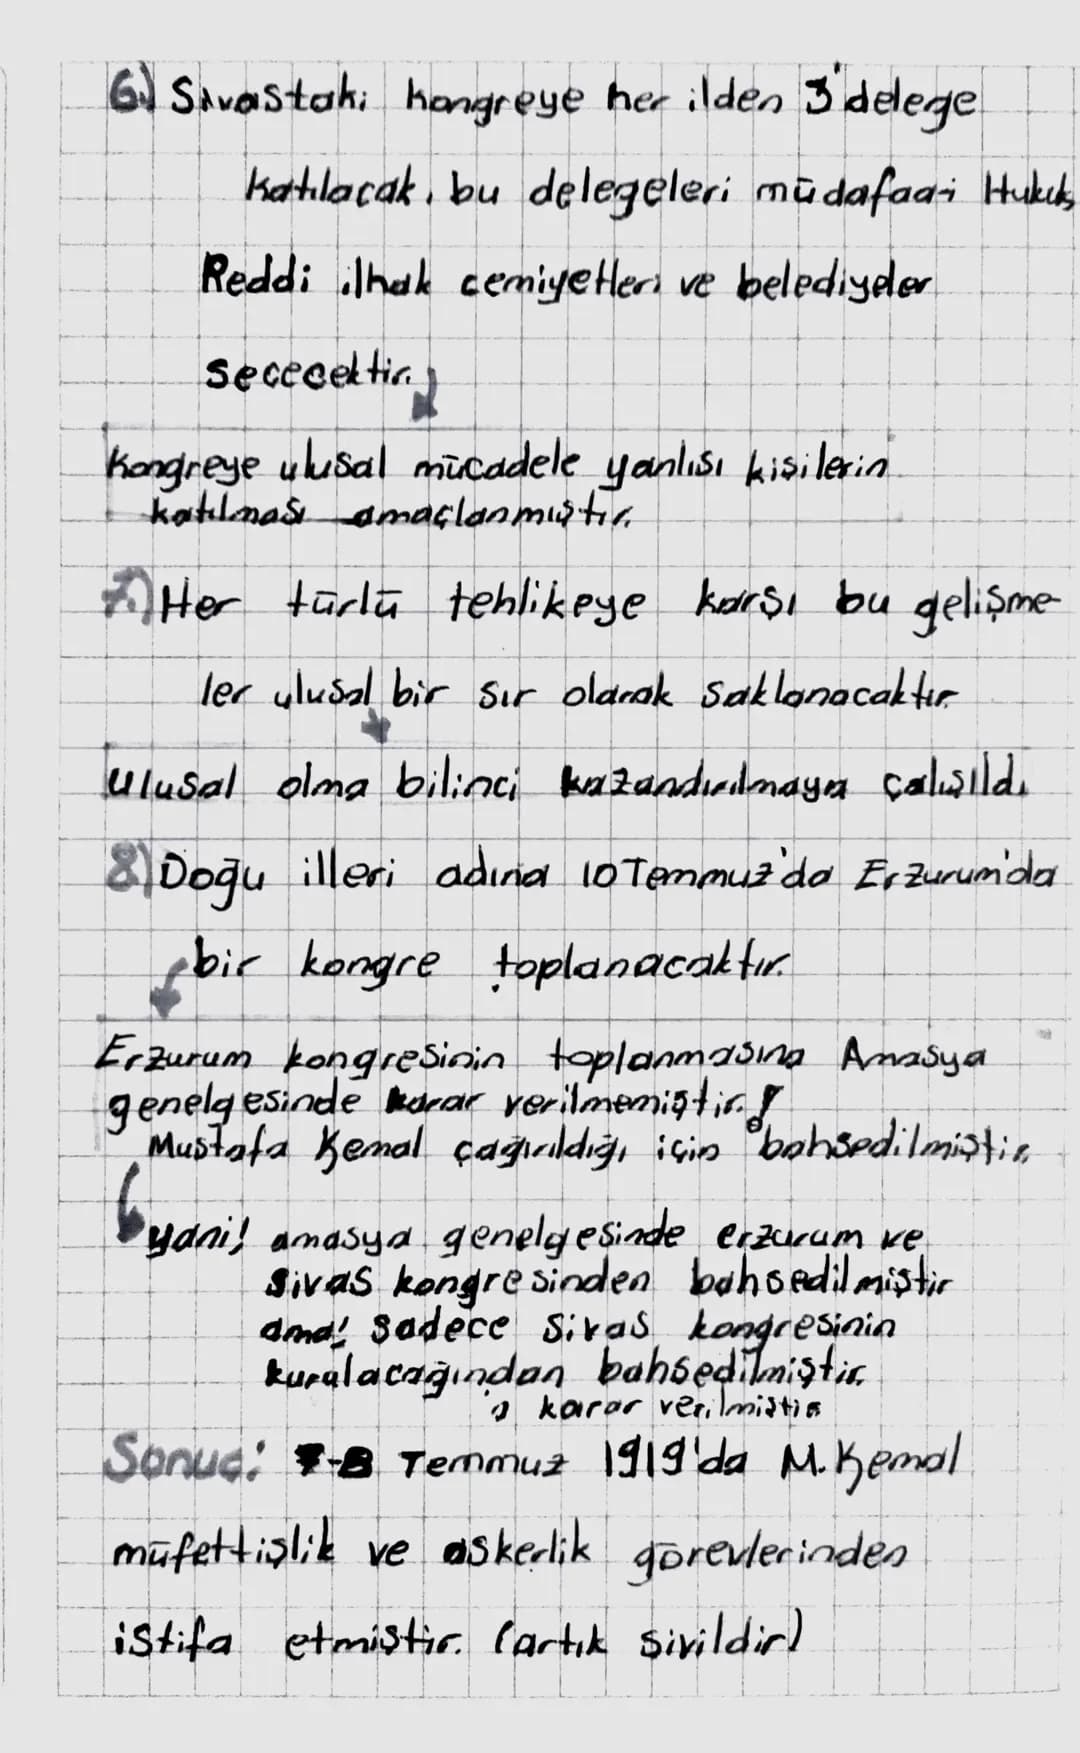 6.) Sivastaki kongreye her ilden 3 delege
katılacak, bu delegeleri müdafaa-i Hukuk,
Reddi ilhak cemiyetleri ve belediyeler
sececektir.
Kongreye ulusal mücadele yanlısı kişilerin
katılması amaçlanmıştır.
7.) Her türlü tehlikeye karşı bu gelişme
ler ulusal bir sır olarak saklanacaktır
Ulusal olma bilinci kazandırılmaya çalışıldı
8) Doğu illeri adına 10 Temmuz'da Erzurum'da
bir kongre toplanacaktır.
Erzurum kongresinin toplanmasına Amasya
genelgesinde karar verilmemiştir.!
Mustafa Kemal çağırıldığı için bahsedilmiştir.
yani! amasya genelgesinde erzurum ve
sivas kongresinden bahsedilmiştir
ama! sadece sivas kongresinin
kurulacağından bahsedilmiştir.
karar verilmiştir
Sonuç: 7-8 Temmuz 1919'da M. Kemal
müfettişlik ve askerlik görevlerinden
istifa etmiştir. (artık sivildir)